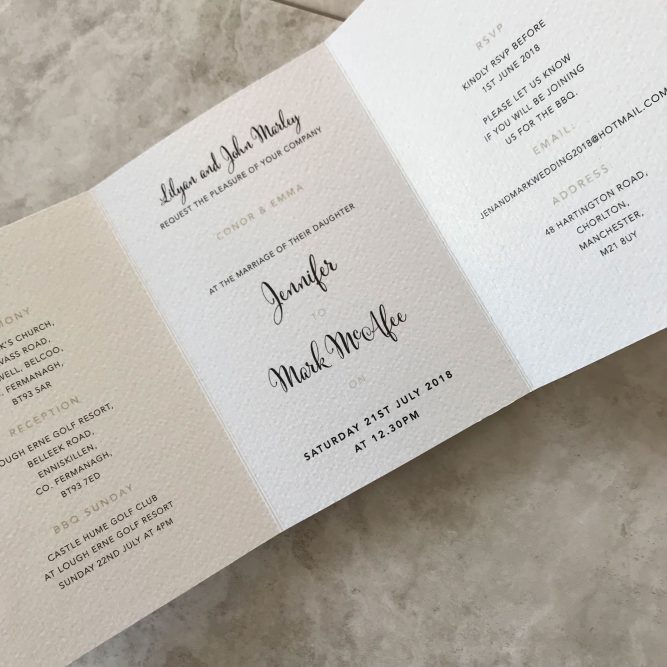 MONY
K'S CHURCH,
VASS ROAD,
WELL, BELCOO,
. FERMANAGH,
BT93 5AR
RECEPTION
OUGH ERNE GOLF RESORT,
BELLEEK ROAD,
ENNISKILLEN,
CO. FERMANAGH,
BT93 7ED
BBQ SUNDAY
CASTLE HUME GOLF CLUB
AT LOUGH ERNE GOLF RESORT
SUNDAY 22ND JULY AT 4PM
Lilyan and John Marley
REQUEST THE PLEASURE OF YOUR COMPANY
CONOR & EMMA
AT THE MARRIAGE OF THEIR DAUGHTER
Jennifer
TO
Mark McAfee
ON
SATURDAY 21ST JULY 2018
AT 12.30PM
RSVP
KINDLY RSVP BEFORE
1ST JUNE 2018
PLEASE LET US KNOW
IF YOU WILL BE JOINING
US FOR THE BBQ.
EMAIL:
JENANDMARKWEDDING2018@HOTMAIL.COM
ADDRESS
48 HARTINGTON ROAD,
CHORLTON,
MANCHESTER,
M21 8UY